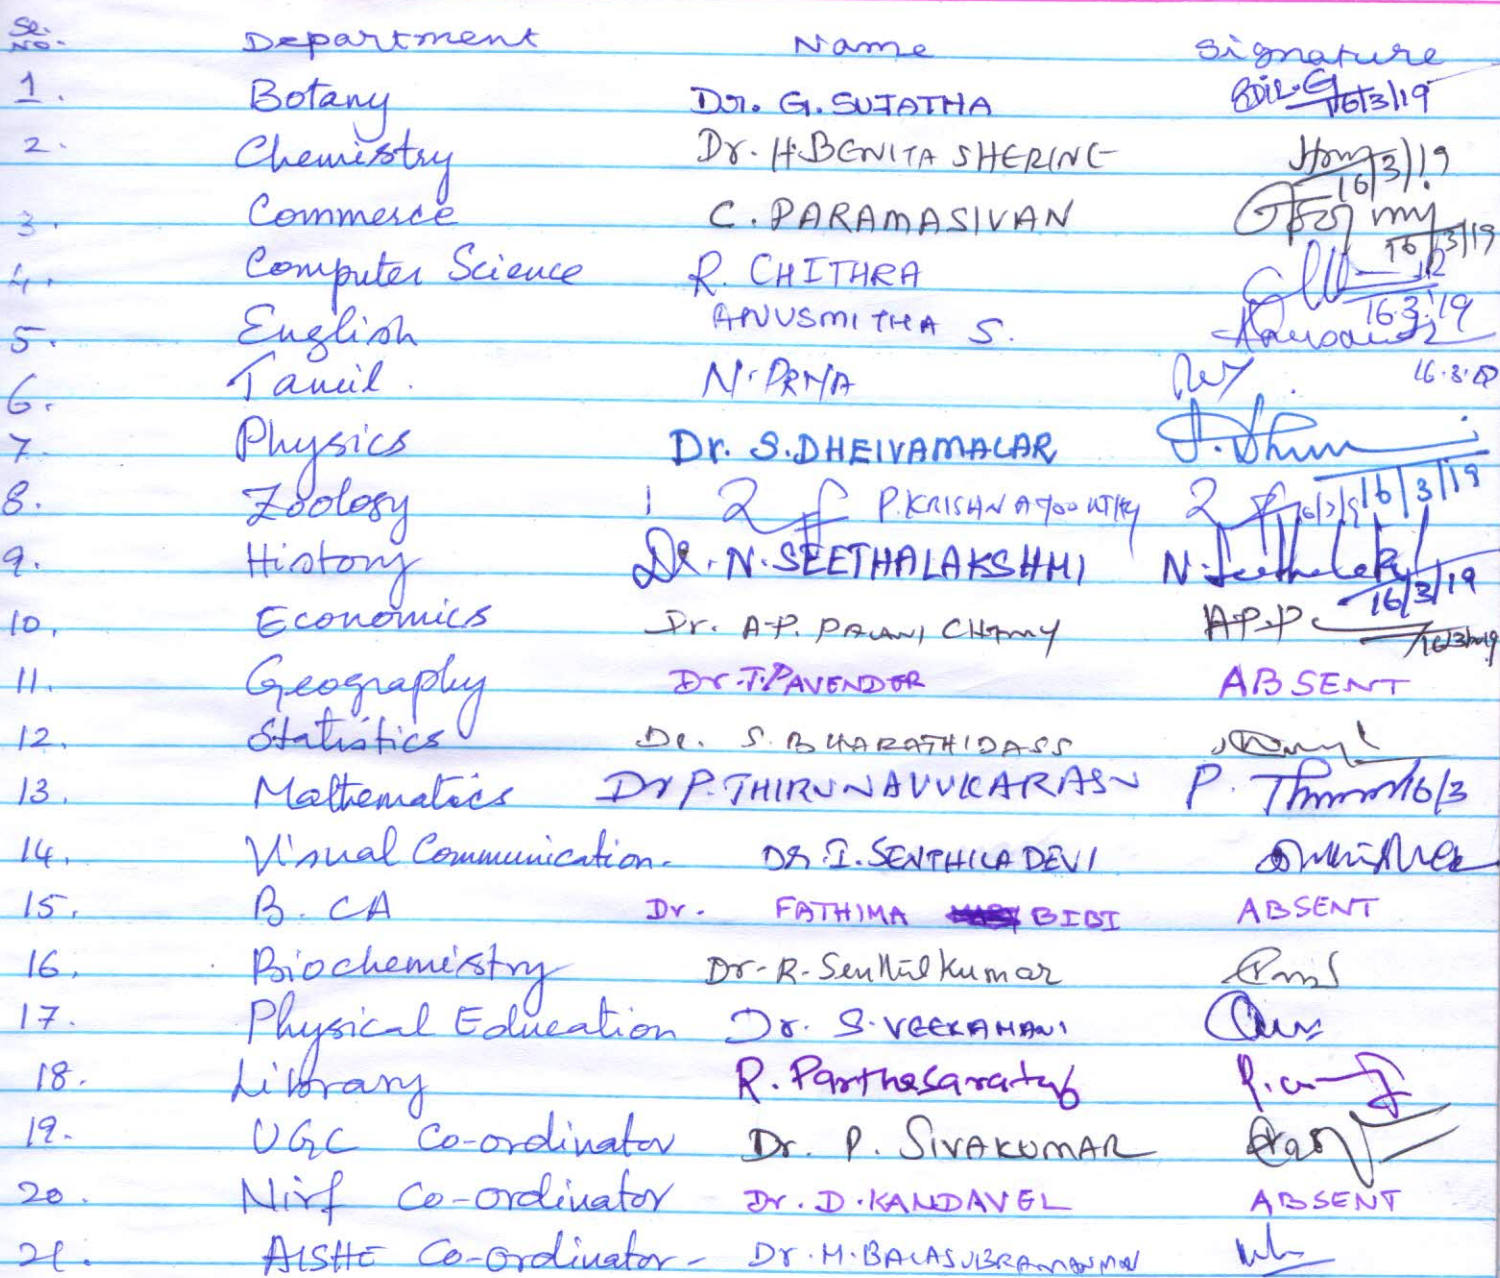 Sl. No. Department Name Signature
1. Botany Dr. G. SUJATHA 16/3/19
2. Chemistry Dr. H. BENITA SHERINE 16/3/19
3. Commerce C. PARAMASIVAN 16/3/19
4. Computer Science R. CHITHRA 16.3.19
5. English ANUSMITHA S.
6. Tamil.
7. Physics Dr. S. DHEIVAMALAR 16/3/19
8. Zoology
9. History Dr. N. SEETHALAKSHMI 16/3/19
10. Economics Dr. A.P. PALANI CHAMY A.P.P.
11. Geography Dr. T. PAVENDER ABSENT
12. Statistics Dr. S. BHARATHIDASS
13. Mathematics Dr P. THIRUNAVUKARASU 16/3
14. Visual Communication - DR. I. SENTHILA DEVI
15. B.CA Dr. FATHIMA BIBI ABSENT
16. Biochemistry Dr. R. Senthilkumar
17. Physical Education Dr. S. VEERAMANI
18. Library R. Parthasarathy
19. UGC Co-ordinator Dr. P. SIVAKUMAR
20. Nirf Co-ordinator Dr. D. KANDAVEL ABSENT
21. AISHE Co-ordinator - Dr. M. BALASUBRAMANIAN